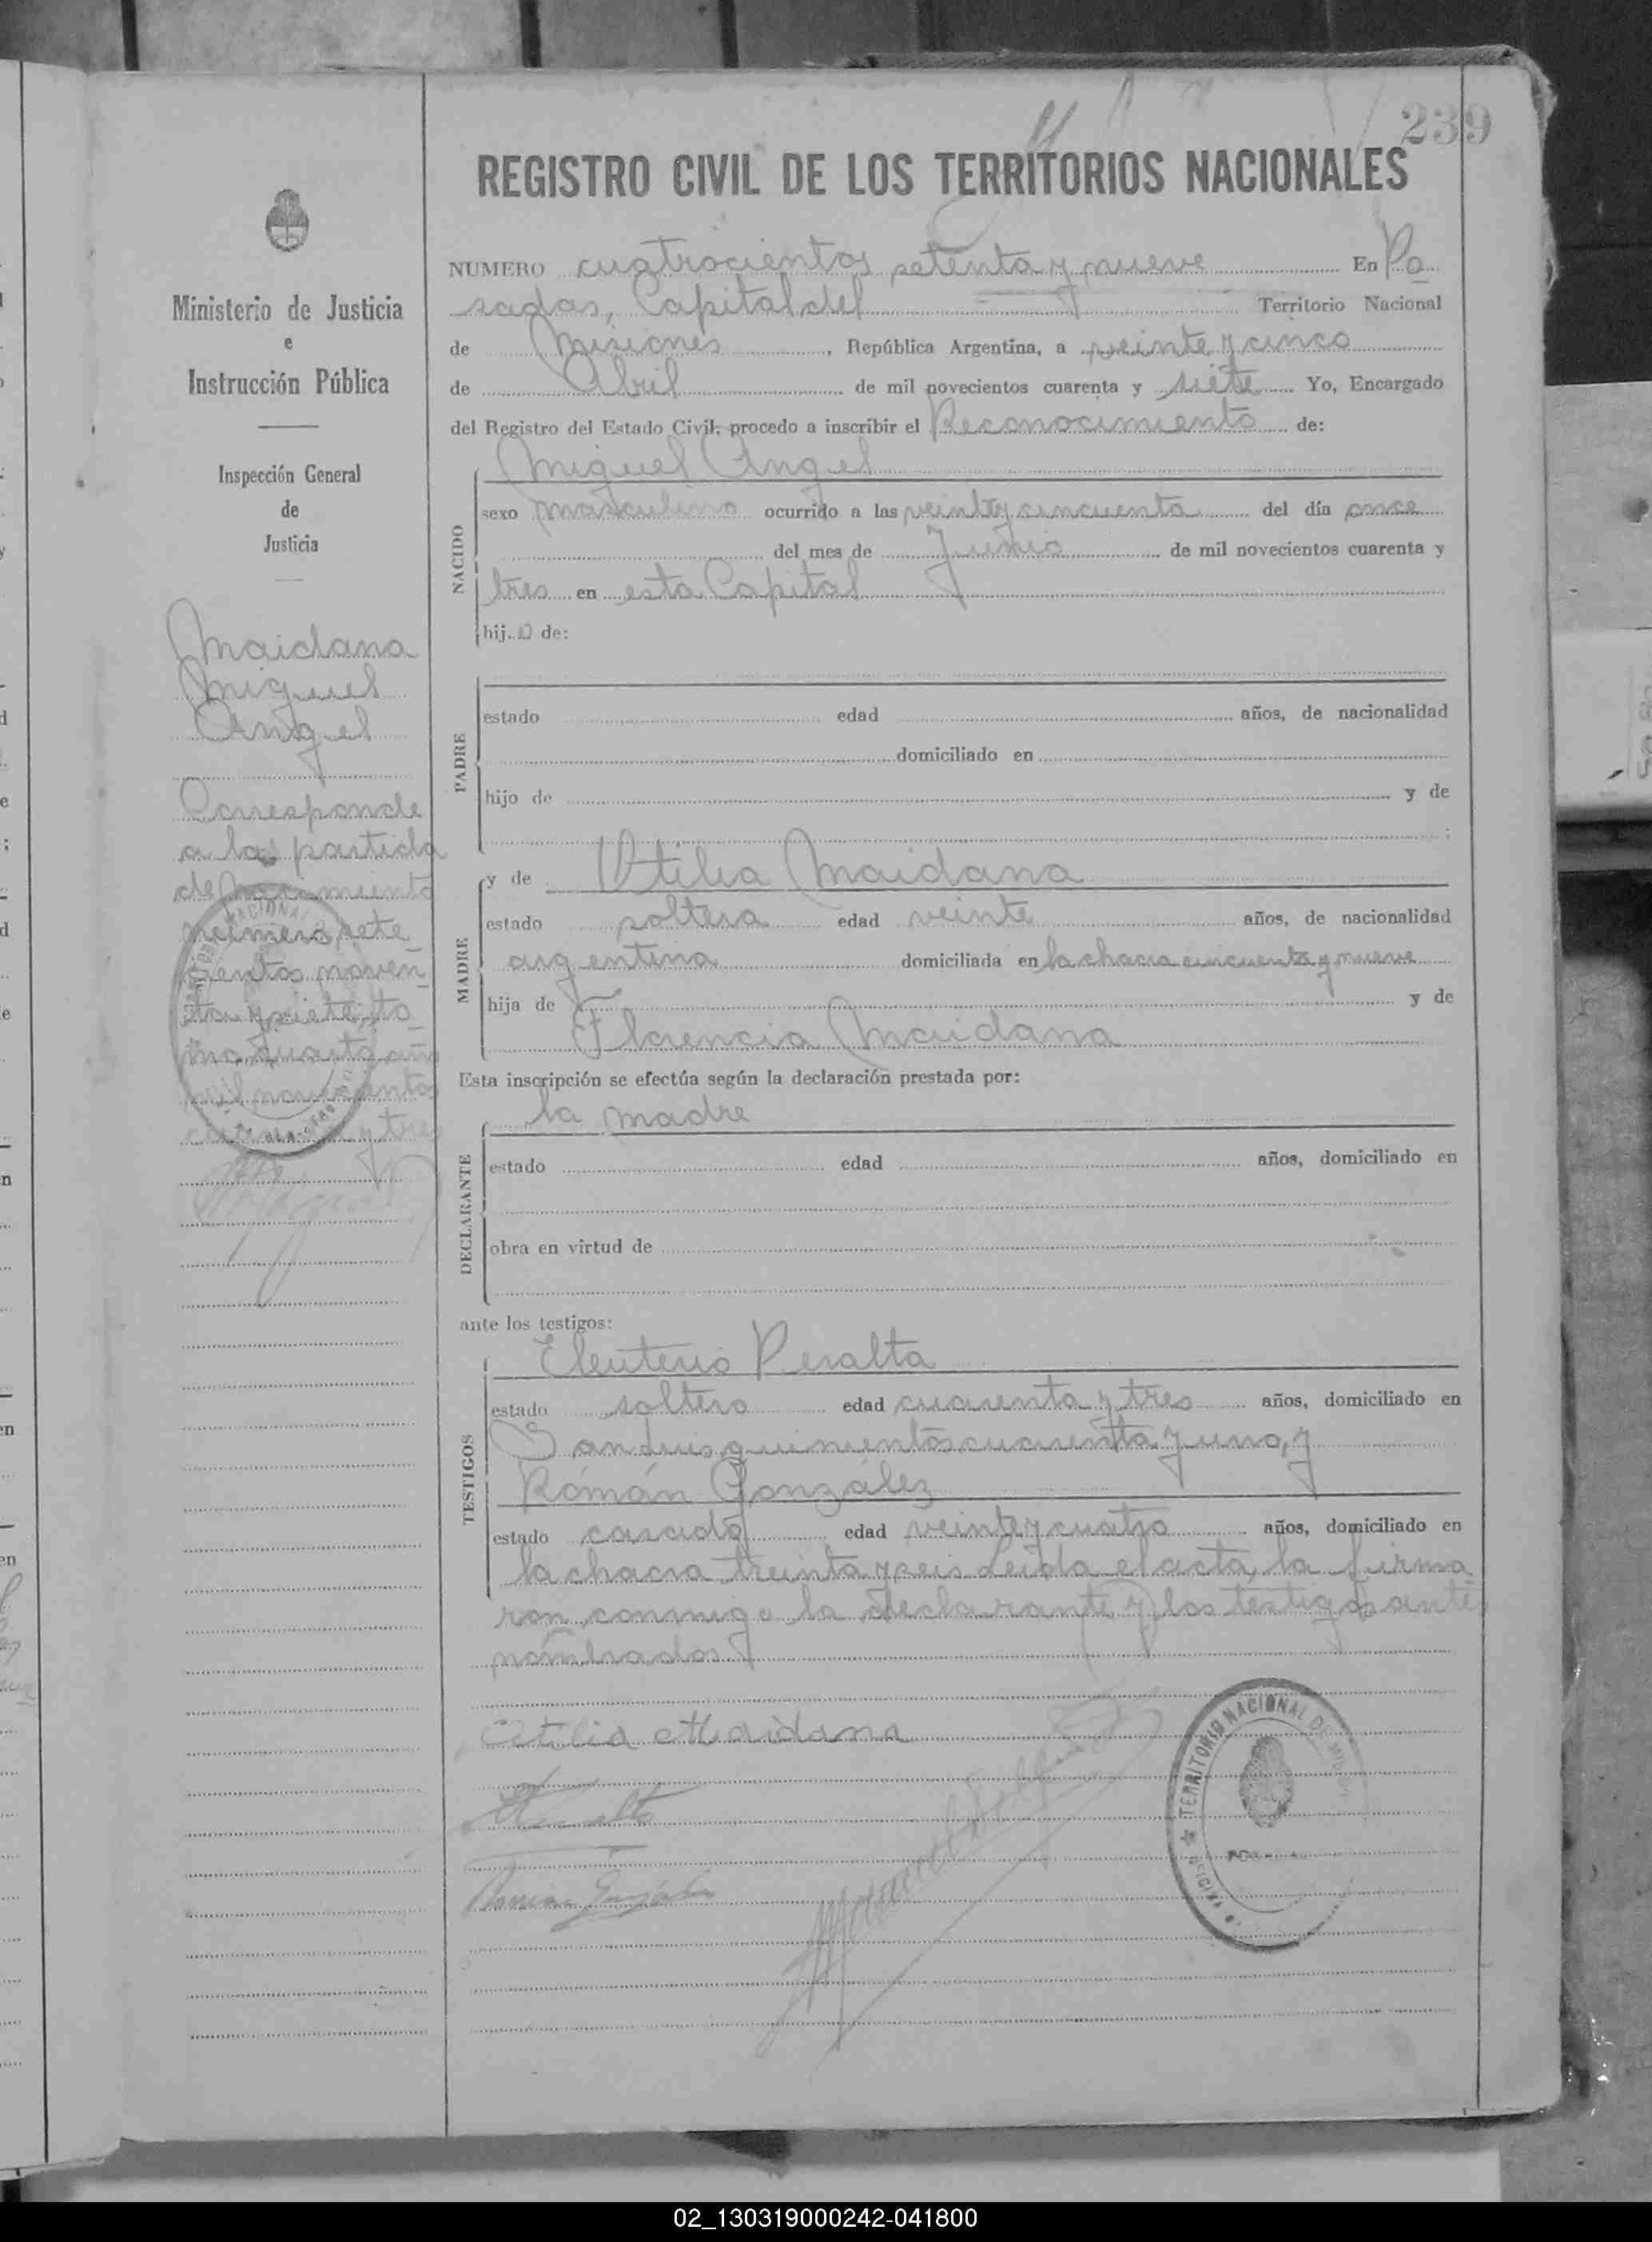 239
REGISTRO CIVIL DE LOS TERRITORIOS NACIONALES
NUMERO cuatrocientos setenta y nueve En Po
sadas, Capital del Territorio Nacional
de Misiones, República Argentina, a veinte y cinco
de Abril de mil novecientos cuarenta y siete Yo, Encargado
del Registro del Estado Civil, procedo a inscribir el Reconocimiento de:
NACIDO
Miguel Angel
sexo masculino ocurrido a las veinte y cincuenta del día once
del mes de Junio de mil novecientos cuarenta y
tres en esta Capital
hijo de:
PADRE
estado edad años, de nacionalidad
domiciliado en
hijo de y de
;
MADRE
y de Otilia Maidana
estado soltera edad veinte años, de nacionalidad
argentina domiciliada en la chacra cincuenta y nueve
hija de y de
Florencia Maidana
Esta inscripción se efectúa según la declaración prestada por:
la madre
DECLARANTE
estado edad años, domiciliado en
obra en virtud de
ante los testigos:
TESTIGOS
Eleuterio Peralta
estado soltero edad cuarenta y tres años, domiciliado en
San Luis quinientos cuarenta y uno, y
Román González
estado casado edad veinte y cuatro años, domiciliado en
la chacra treinta y seis Leida el acta, la firma
ron conmigo la declarante y los testigos ante
nombrados
Otilia Maidana
Román González
TERRITORIO NACIONAL DE MISIONES
Ministerio de Justicia
e
Instrucción Pública
Inspección General
de
Justicia
Maidana
Miguel
Angel
Corresponde
a la partida
de nacimiento
número sete
cientos noven
ta y siete, to
mo cuarto año
mil novecientos
cuarenta y tres
02_130319000242-041800